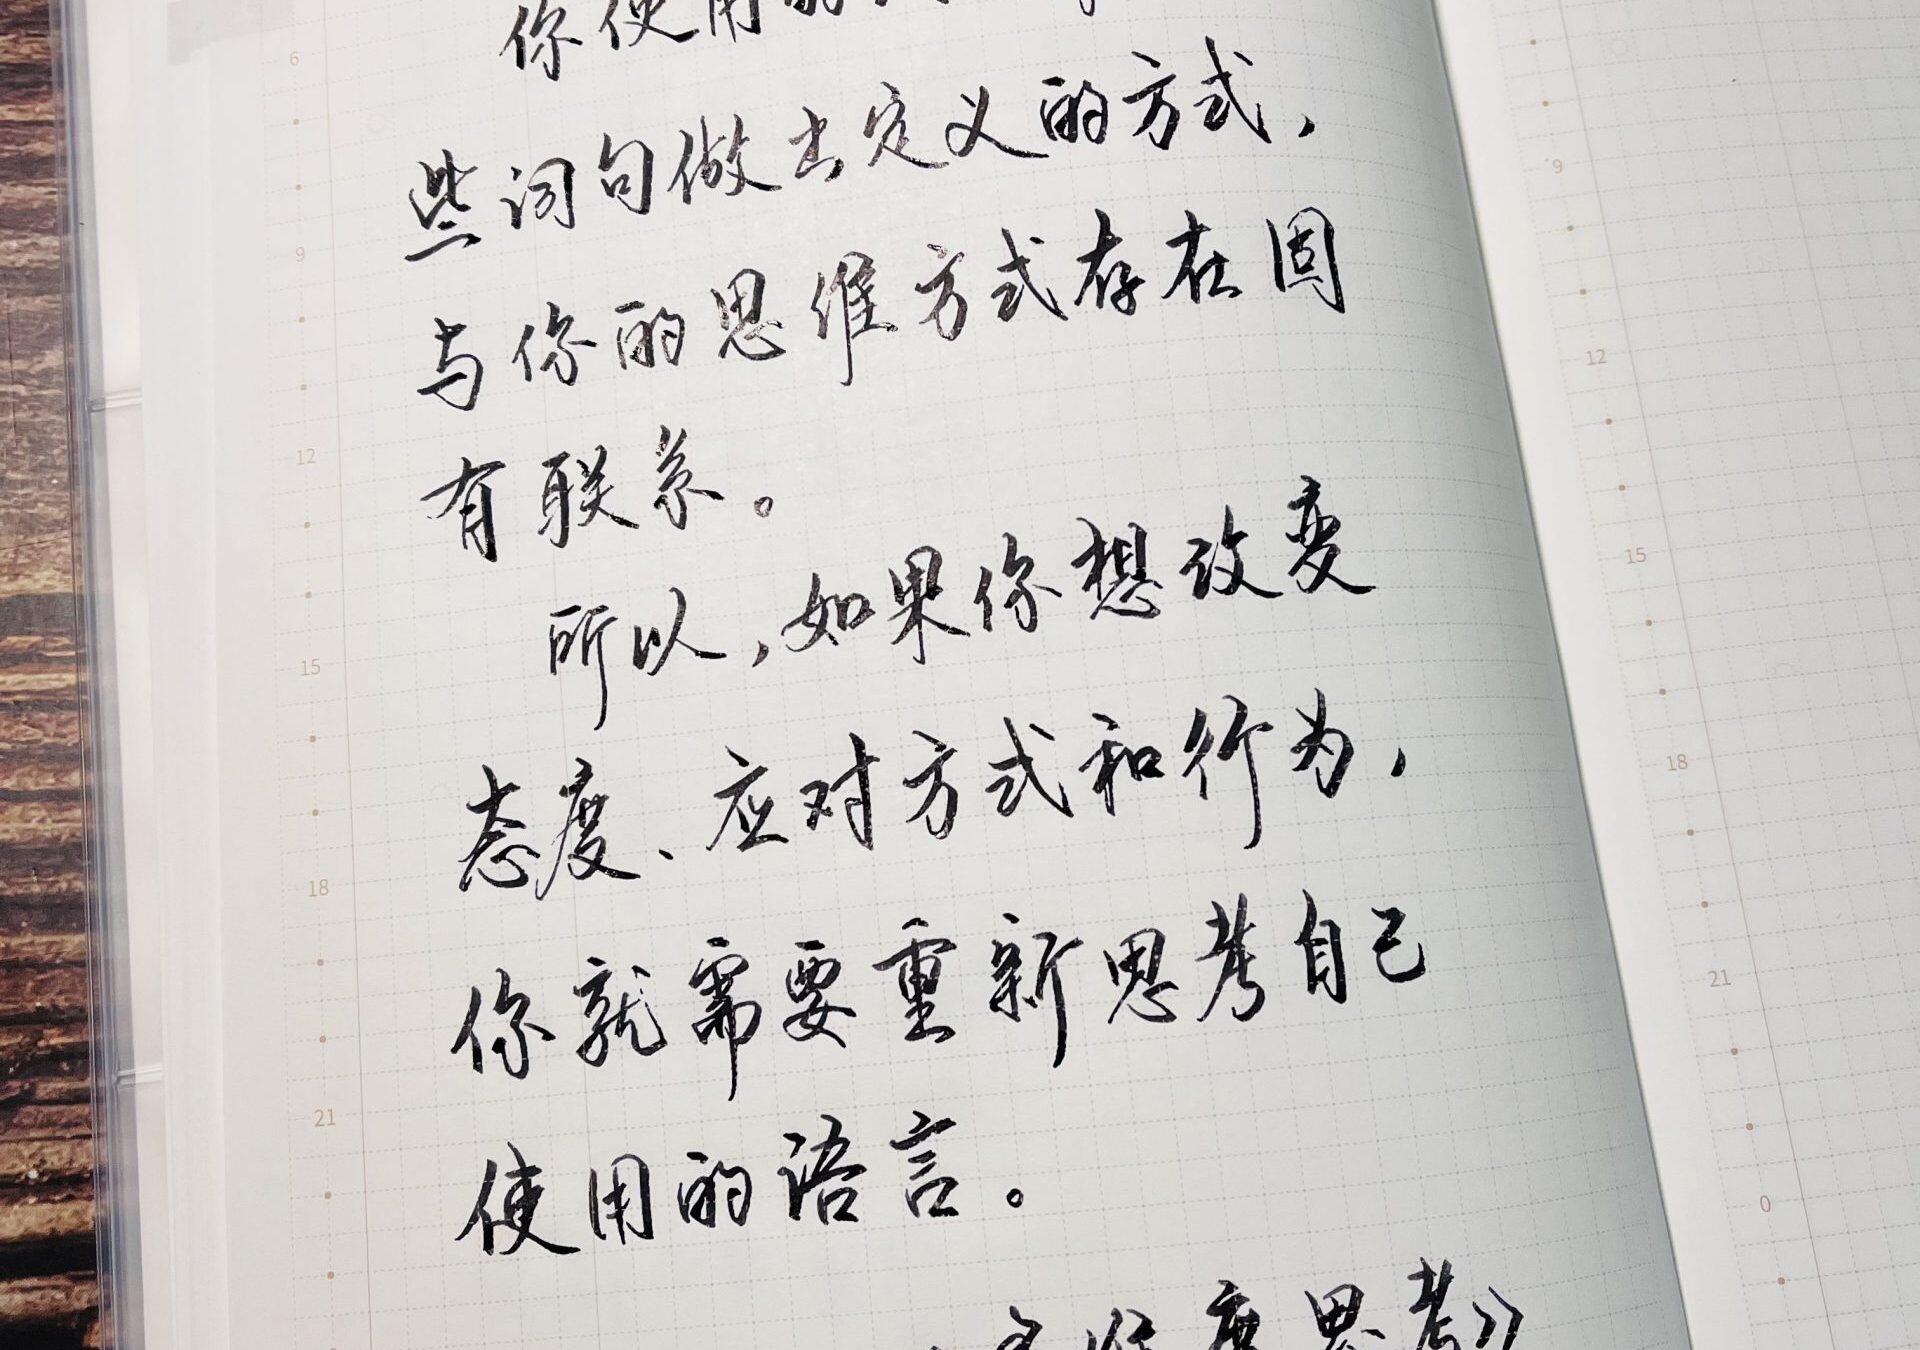 你使用的
些词句做出定义的方式，
与你的思维方式存在固
有联系。
所以，如果你想改变
态度、应对方式和行为，
你就需要重新思考自己
使用的语言。
维度思考》
6
9
12
15
18
21
9
12
15
18
21
0